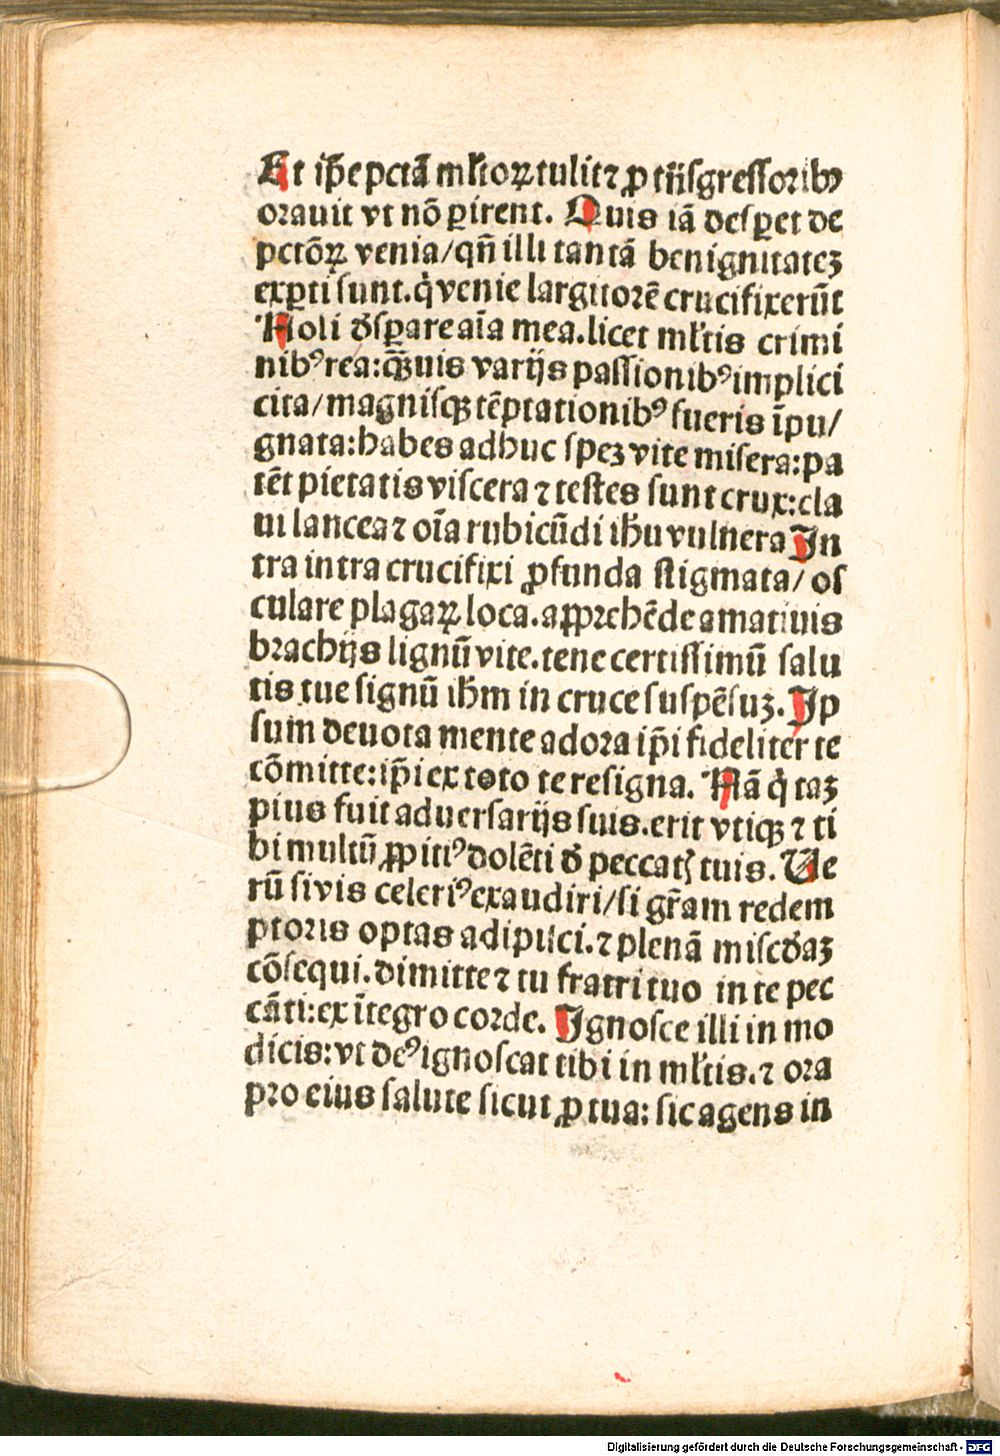 Et ip̄e pctā ml̄toꝝ tulit ⁊ ꝓ trāſgreſſoribꝰ
orauit vt nō ꝑirent. Quis iā deſꝑet de
pctōꝝ venia/qn̄ illi tantā benignitateꝫ
exꝑti ſunt. q̇ venie largitorē crucifixerūt
Noli ꝺſꝑare aīa mea. licet ml̄tis crimi
nibꝰ rea: qͣꝫuis varijs paſſionibꝰ implici
cita/magniſqꝫ tēptationibꝰ fueris īpu/
gnata: habes adhuc ſpeꝫ vite miſera: pa
tēt pietatis viſcera ⁊ teſtes ſunt crux: cla
ui lancea ⁊ oīa rubicūdi ih̄u vulnera In
tra intra crucifixi ꝓfunda ſtigmata/ oſ
culare plagaꝝ loca. apprehēde amatiuis
brachijs lignū vite. tene certiſſimū ſalu
tis tue ſignū ih̄m in cruce ſuſpēſuꝫ. Ip
ſum deuota mente adora ip̄i fideliter te
cōmitte: ip̄i ex toto te reſigna. Nā q̇ taꝫ
pius fuit aduerſarijs ſuis. erit vtiqꝫ ⁊ ti
bi multū ꝓpitiꝰ dolēti ꝺ peccatꝭ tuis. Ue
rū ſi vis celeriꝰ exaudiri/ſi gr̄am redem
ptoris optas adipiſci. ⁊ plenā miſcꝺaꝫ
cōſequi. dimitte ⁊ tu fratri tuo in te pec
cāti: ex ītegro corde. Ignoſce illi in mo
dicis: vt deꝰ ignoſcat tibi in ml̄tis. ⁊ ora
pro eius ſalute ſicut ꝓ tua: ſic agens in
Digitalisierung gefördert durch die Deutsche Forschungsgemeinschaft - DFG